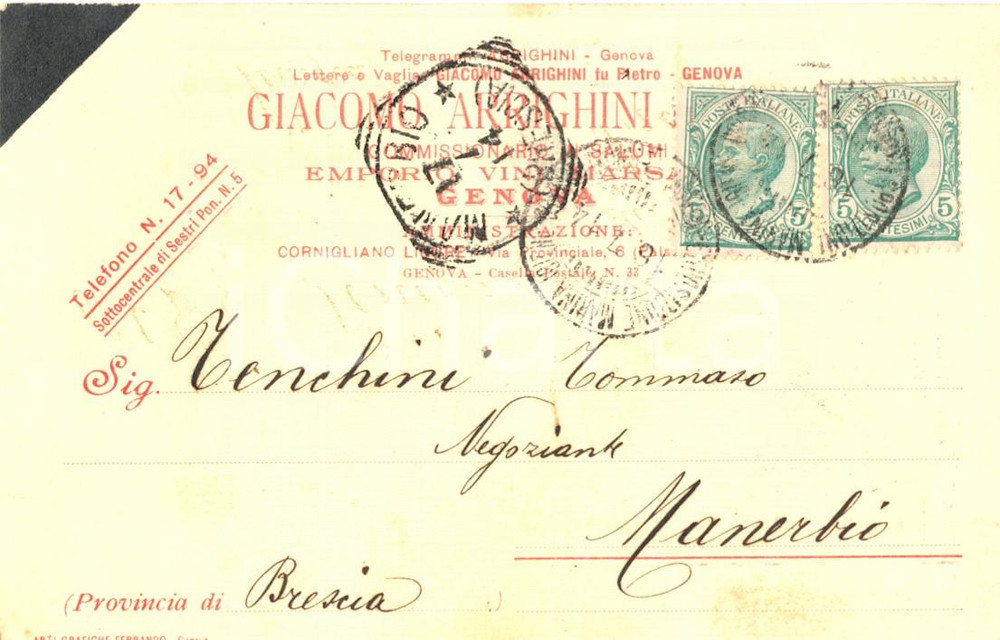 Telegrammi ARRIGHINI - Genova
Lettere e Vaglia GIACOMO ARRIGHINI fu Pietro - GENOVA
GIACOMO ARRIGHINI
COMMISSIONARIO IN SALUMI
EMPORIO VINI MARSALA
GENOVA
AMMINISTRAZIONE:
CORNIGLIANO LIGURE - Via Provinciale, 6
GENOVA - Casella Postale, N. 33
Telefono N. 17-94
Sottocentrale di Sestri Pon. N. 5
MANERBIO
(BRESCIA)
17.1
14
POSTE ITALIANE
5 CENTESIMI 5
POSTE ITALIANE
5 CENTESIMI 5
Sig. Tenchini Tommaso
Negoziante
Manerbio
(Provincia di Brescia
ARTI GRAFICHE FERRANDO